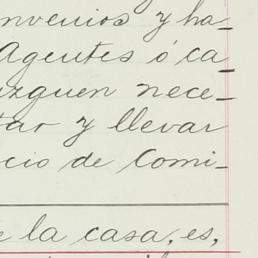 nvenios y ha-
Agentes ó ca-
uzguen nece-
tar y llevar
cio de Comi-
e la casa, es,